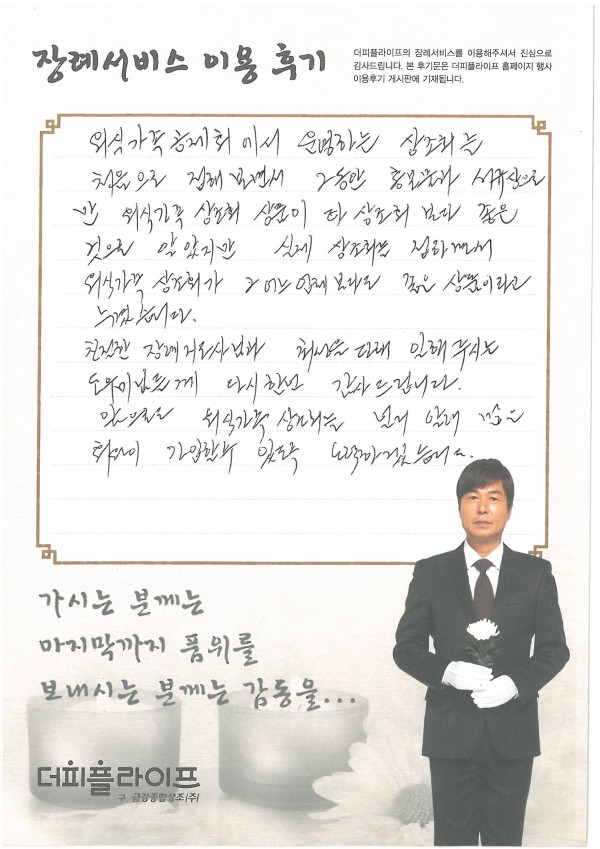 장례서비스 이용 후기
더피플라이프의 장례서비스를 이용해주셔서 진심으로
감사드립니다. 본 후기문은 더피플라이프 홈페이지 행사
이용후기 게시판에 기재됩니다.
외식가족공제회에서 운영하는 상조회는
처음으로 접해 보면서 그동안 홍보물과 서류상으로
만 외식가족 상조회 상품이 타 상조회 보다 좋은
것으로 알았지만 실제 상조회를 접하면서
외식가족 상조회가 그 어느 업체보다도 좋은 상품이라고
느꼈습니다.
친절한 장례지도사님과 최선을 다해 일해주시는
도우미님들께 다시한번 감사드립니다.
앞으로도 외식가족 상조회를 널리 알려 많은
회원이 가입할수 있도록 노력하겠습니다.
가시는 분께는
마지막까지 품위를
보내시는 분께는 감동을...
더피플라이프
구. 금강종합상조(주)